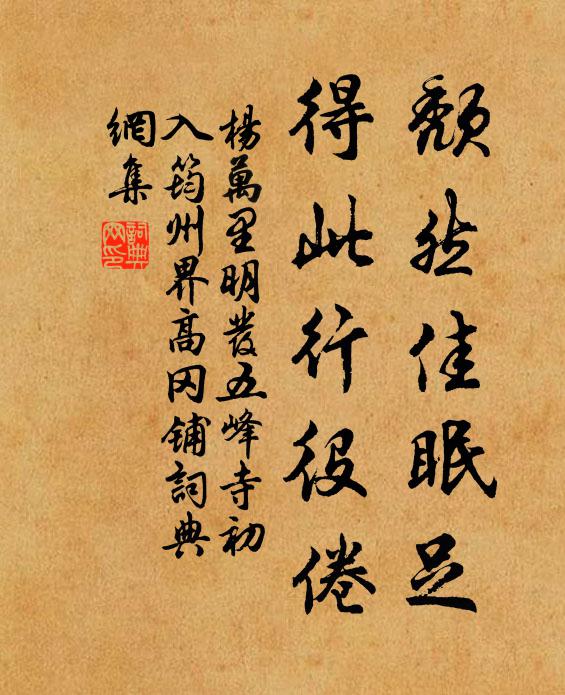 頹然佳眠足
得此行役倦
楊萬里明發五峰寺初
入筠州界高冈鋪詞典
網集
詞典
网印